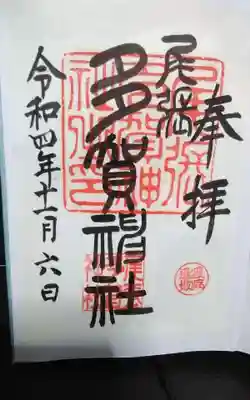 奉拝
尾張
多賀神社
令和四年十一月六日